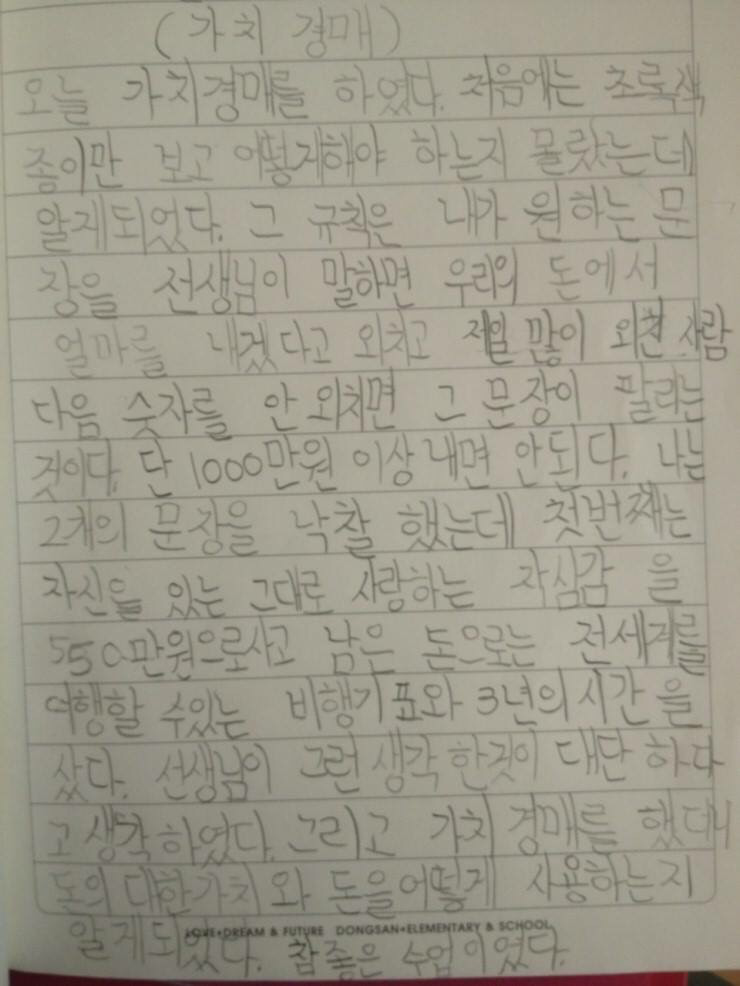 (가치 경매)
오늘 가치경매를 하였다. 처음에는 초록색
종이만 보고 어떻게해야 하는지 몰랐는데
알게되었다. 그 규칙은 내가 원하는 문
장을 선생님이 말하면 우리의 돈에서
얼마를 내겠다고 외치고 제일 많이 외친 사람
다음 숫자를 안 외치면 그 문장이 팔리는
것이다. 단 1000만원 이상 내면 안된다. 나는
2개의 문장을 낙찰 했는데 첫번째는
자신을 있는 그대로 사랑하는 자심감 을
550만원으로사고 남은 돈으로는 전세계를
여행할 수있는 비행기 표와 3년의 시간 을
샀다. 선생님이 그런 생각 한것이 대단 하다
고 생각 하였다. 그리고 가치 경매를 했더니
돈의 대한가치 와 돈을어떻게 사용하는지
LOVE•DREAM & FUTURE DONGSAN•ELEMENTARY & SCHOOL
알게되었다. 참좋은 수업 이였다.